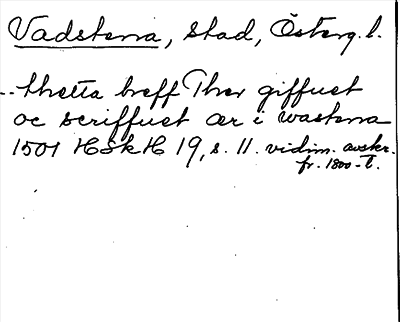 Vadstena, stad, Österg.l.
.. thetta breff Ther giffuet
oc scriffuet ær i wastena
1501 HSkH 19, s. 11. vidim. avskr.
fr. 1800-t.